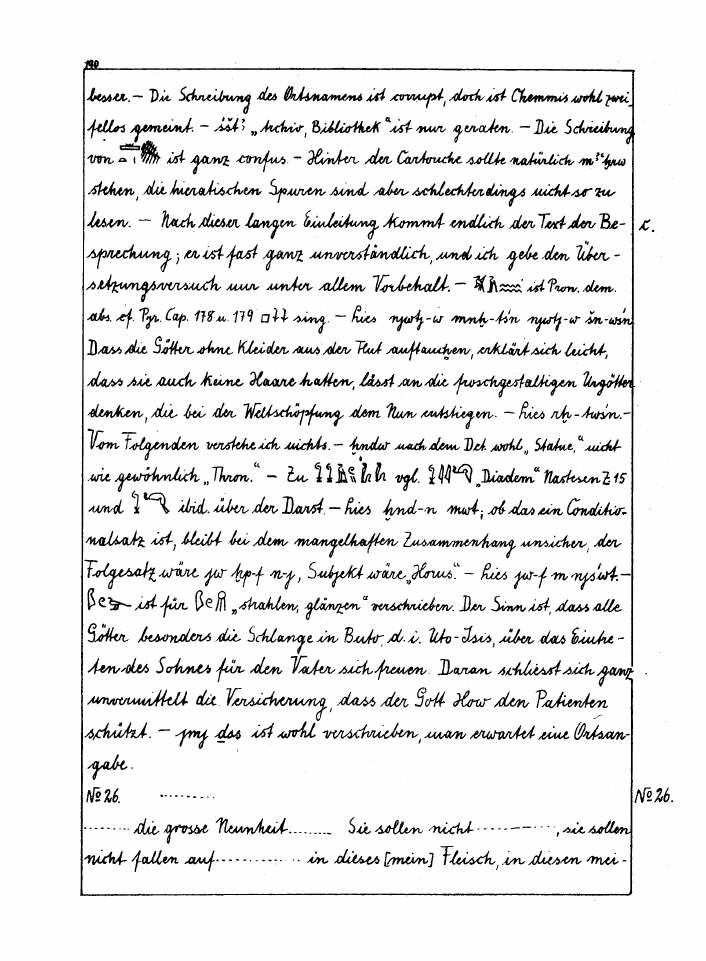 190
besser. — Die Schreibung des Ortsnamens ist corrupt, doch ist Chemmis wohl zwei
fellos gemeint. — „Archiv, Bibliothek" ist nur geraten. — Die Schreibung
von ist ganz confus. — Hinter der Cartouche sollte natürlich
stehen, die hieratischen Spuren sind aber schlechterdings nicht so zu
lesen. — Nach dieser langen Einleitung kommt endlich der Text der Be-
sprechung; er ist fast ganz unverständlich, und ich gebe den Über-
setzungsversuch nur unter allem Vorbehalt. — ist Pron. dem.
abs. cf. Pyr. Cap. 178 u. 179 sing. — lies njwtj-w mnḫ-t śn njwtj-w šn-w śn
Dass die Götter ohne Kleider aus der Flut auftauchen, erklärt sich leicht,
dass sie auch keine Haare hatten, lässt an die froschgestaltigen Urgötter
denken, die bei der Weltschöpfung dem Nun entstiegen. — lies rḫ-twśn. —
Vom Folgenden verstehe ich nichts. — ḫndw nach dem Det. wohl „Statue," nicht
wie gewöhnlich „Thron." — Zu vgl. „Diadem" Nastesen Z 15
und ibid. über der Darst. — lies ḫnd-n mwt; ob das ein Conditio-
nalsatz ist, bleibt bei dem mangelhaften Zusammenhang unsicher, der
Folgesatz wäre jw ḫp-f n-j, Subjekt wäre „Horus". — lies jw-f m njśwt. —
ist für „strahlen, glänzen" verschrieben. Der Sinn ist, dass alle
Götter besonders die Schlange in Buto, d. i. Uto-Isis, über das Eintre-
ten des Sohnes für den Vater sich freuen. Daran schliesst sich ganz
unvermittelt die Versicherung, dass der Gott How den Patienten
schützt. — jmj das ist wohl verschrieben, man erwartet eine Ortsan-
gabe.
No 26. ..........
........ die grosse Neunheit ........ Sie sollen nicht .........., sie sollen
nicht fallen auf ............ in dieses [mein] Fleisch, in diesen mei-
c.
No 26.